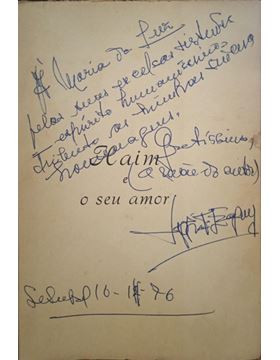 À Maria da Luz
pelas suas excelsas virtudes
espírito humanístico
tributo as minhas sinceras
homenagens,
Gratíssimo,
Haim
(a mãe do autor)
o seu amor
Setúbal 16-11-76